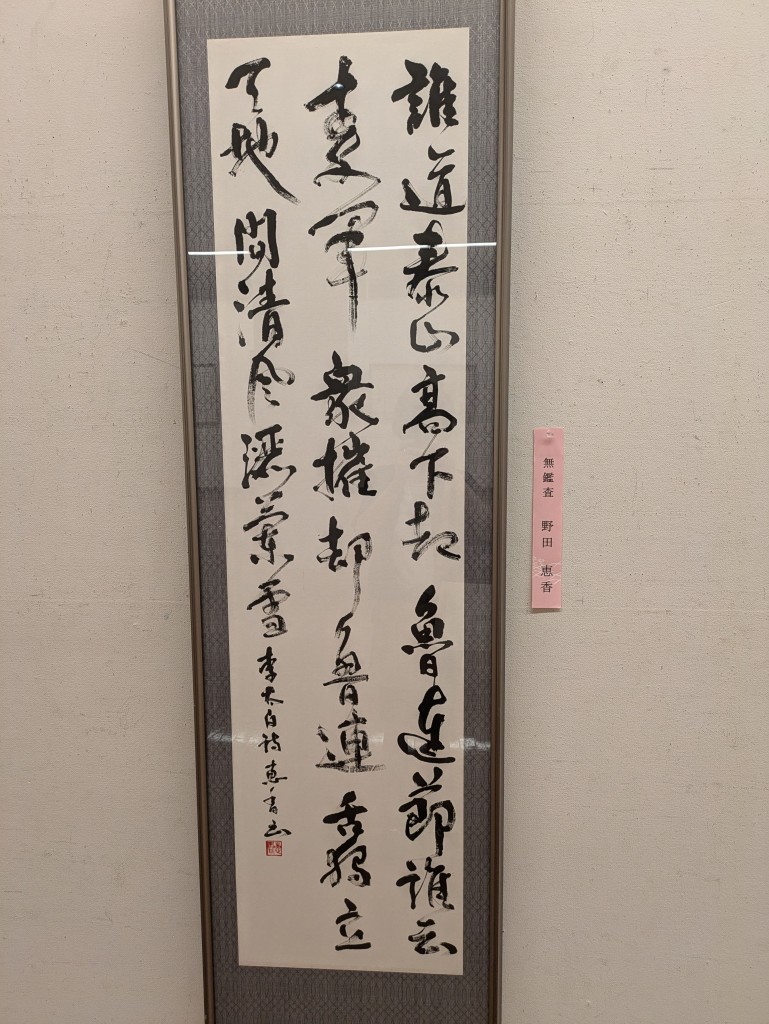 誰道泰山高下却魯連節誰云
秦軍衆摧却魯連舌獨立
天地間清風灑蘭雪 李太白詩 惠香書
無鑑査 野田 恵香